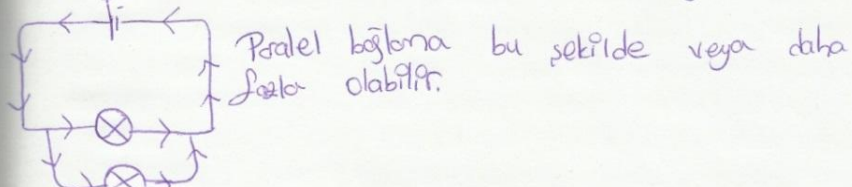 Paralel bağlama bu şekilde veya daha
fazla olabilir.